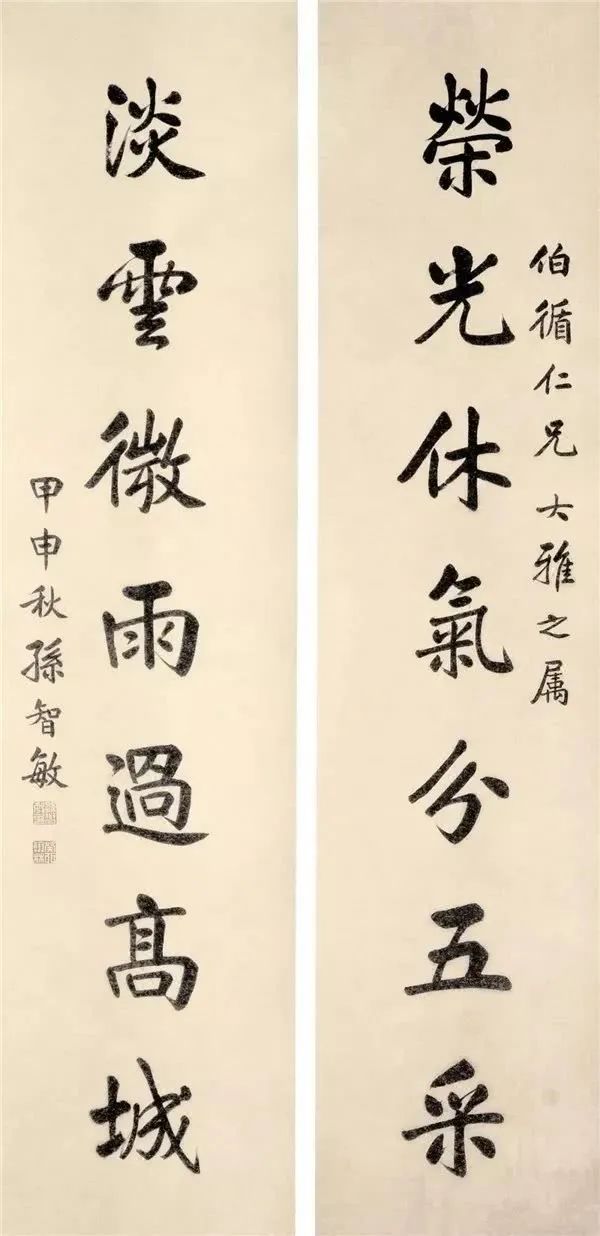 榮光休氣分五采
伯循仁兄大雅之属
淡雲微雨過高城
甲申秋孫智敏